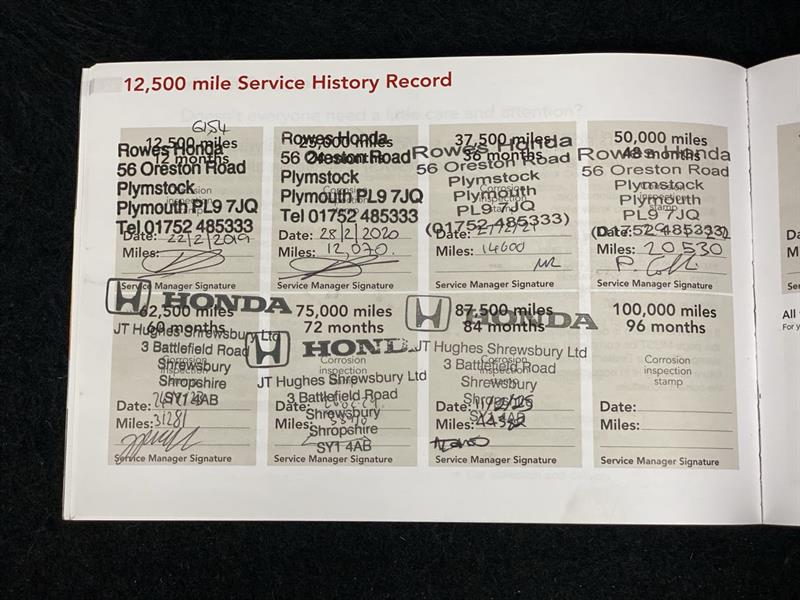 12,500 mile Service History Record
6154
12,500 miles
12 months
Rowes Honda
56 Oreston Road
Plymstock
Plymouth PL9 7JQ
Tel 01752 485333
Corrosion
inspection
stamp
Date: 22/2/2019
Miles:
Service Manager Signature
25,000 miles
24 months
Rowes Honda
56 Oreston Road
Plymstock
Plymouth PL9 7JQ
Tel 01752 485333
Date: 28/2/2020
Miles: 12,070.
Service Manager Signature
37,500 miles
36 months
Rowes Honda
56 Oreston Road
Plymstock
Plymouth
PL9 7JQ
(01752 485333)
Corrosion
inspection
stamp
Date:
Miles: 14600
Service Manager Signature
50,000 miles
48 months
Rowes Honda
56 Oreston Road
Plymstock
Plymouth
PL9 7JQ
(01752 485333)
Corrosion
inspection
stamp
Date:
Miles: 20530
Service Manager Signature
62,500 miles
60 months
HONDA
JT Hughes Shrewsbury Ltd
3 Battlefield Road
Shrewsbury
Shropshire
SY1 4AB
Corrosion
inspection
Date:
Miles: 31281
Service Manager Signature
75,000 miles
72 months
HONDA
JT Hughes Shrewsbury Ltd
3 Battlefield Road
Shrewsbury
Shropshire
SY1 4AB
Corrosion
inspection
stamp
Date:
Miles:
Service Manager Signature
87,500 miles
84 months
HONDA
JT Hughes Shrewsbury Ltd
3 Battlefield Road
Shrewsbury
Shropshire
SY1 4AB
Corrosion
inspection
stamp
Date:
Miles:
Service Manager Signature
100,000 miles
96 months
Corrosion
inspection
stamp
Date:
Miles:
Service Manager Signature
All
For y